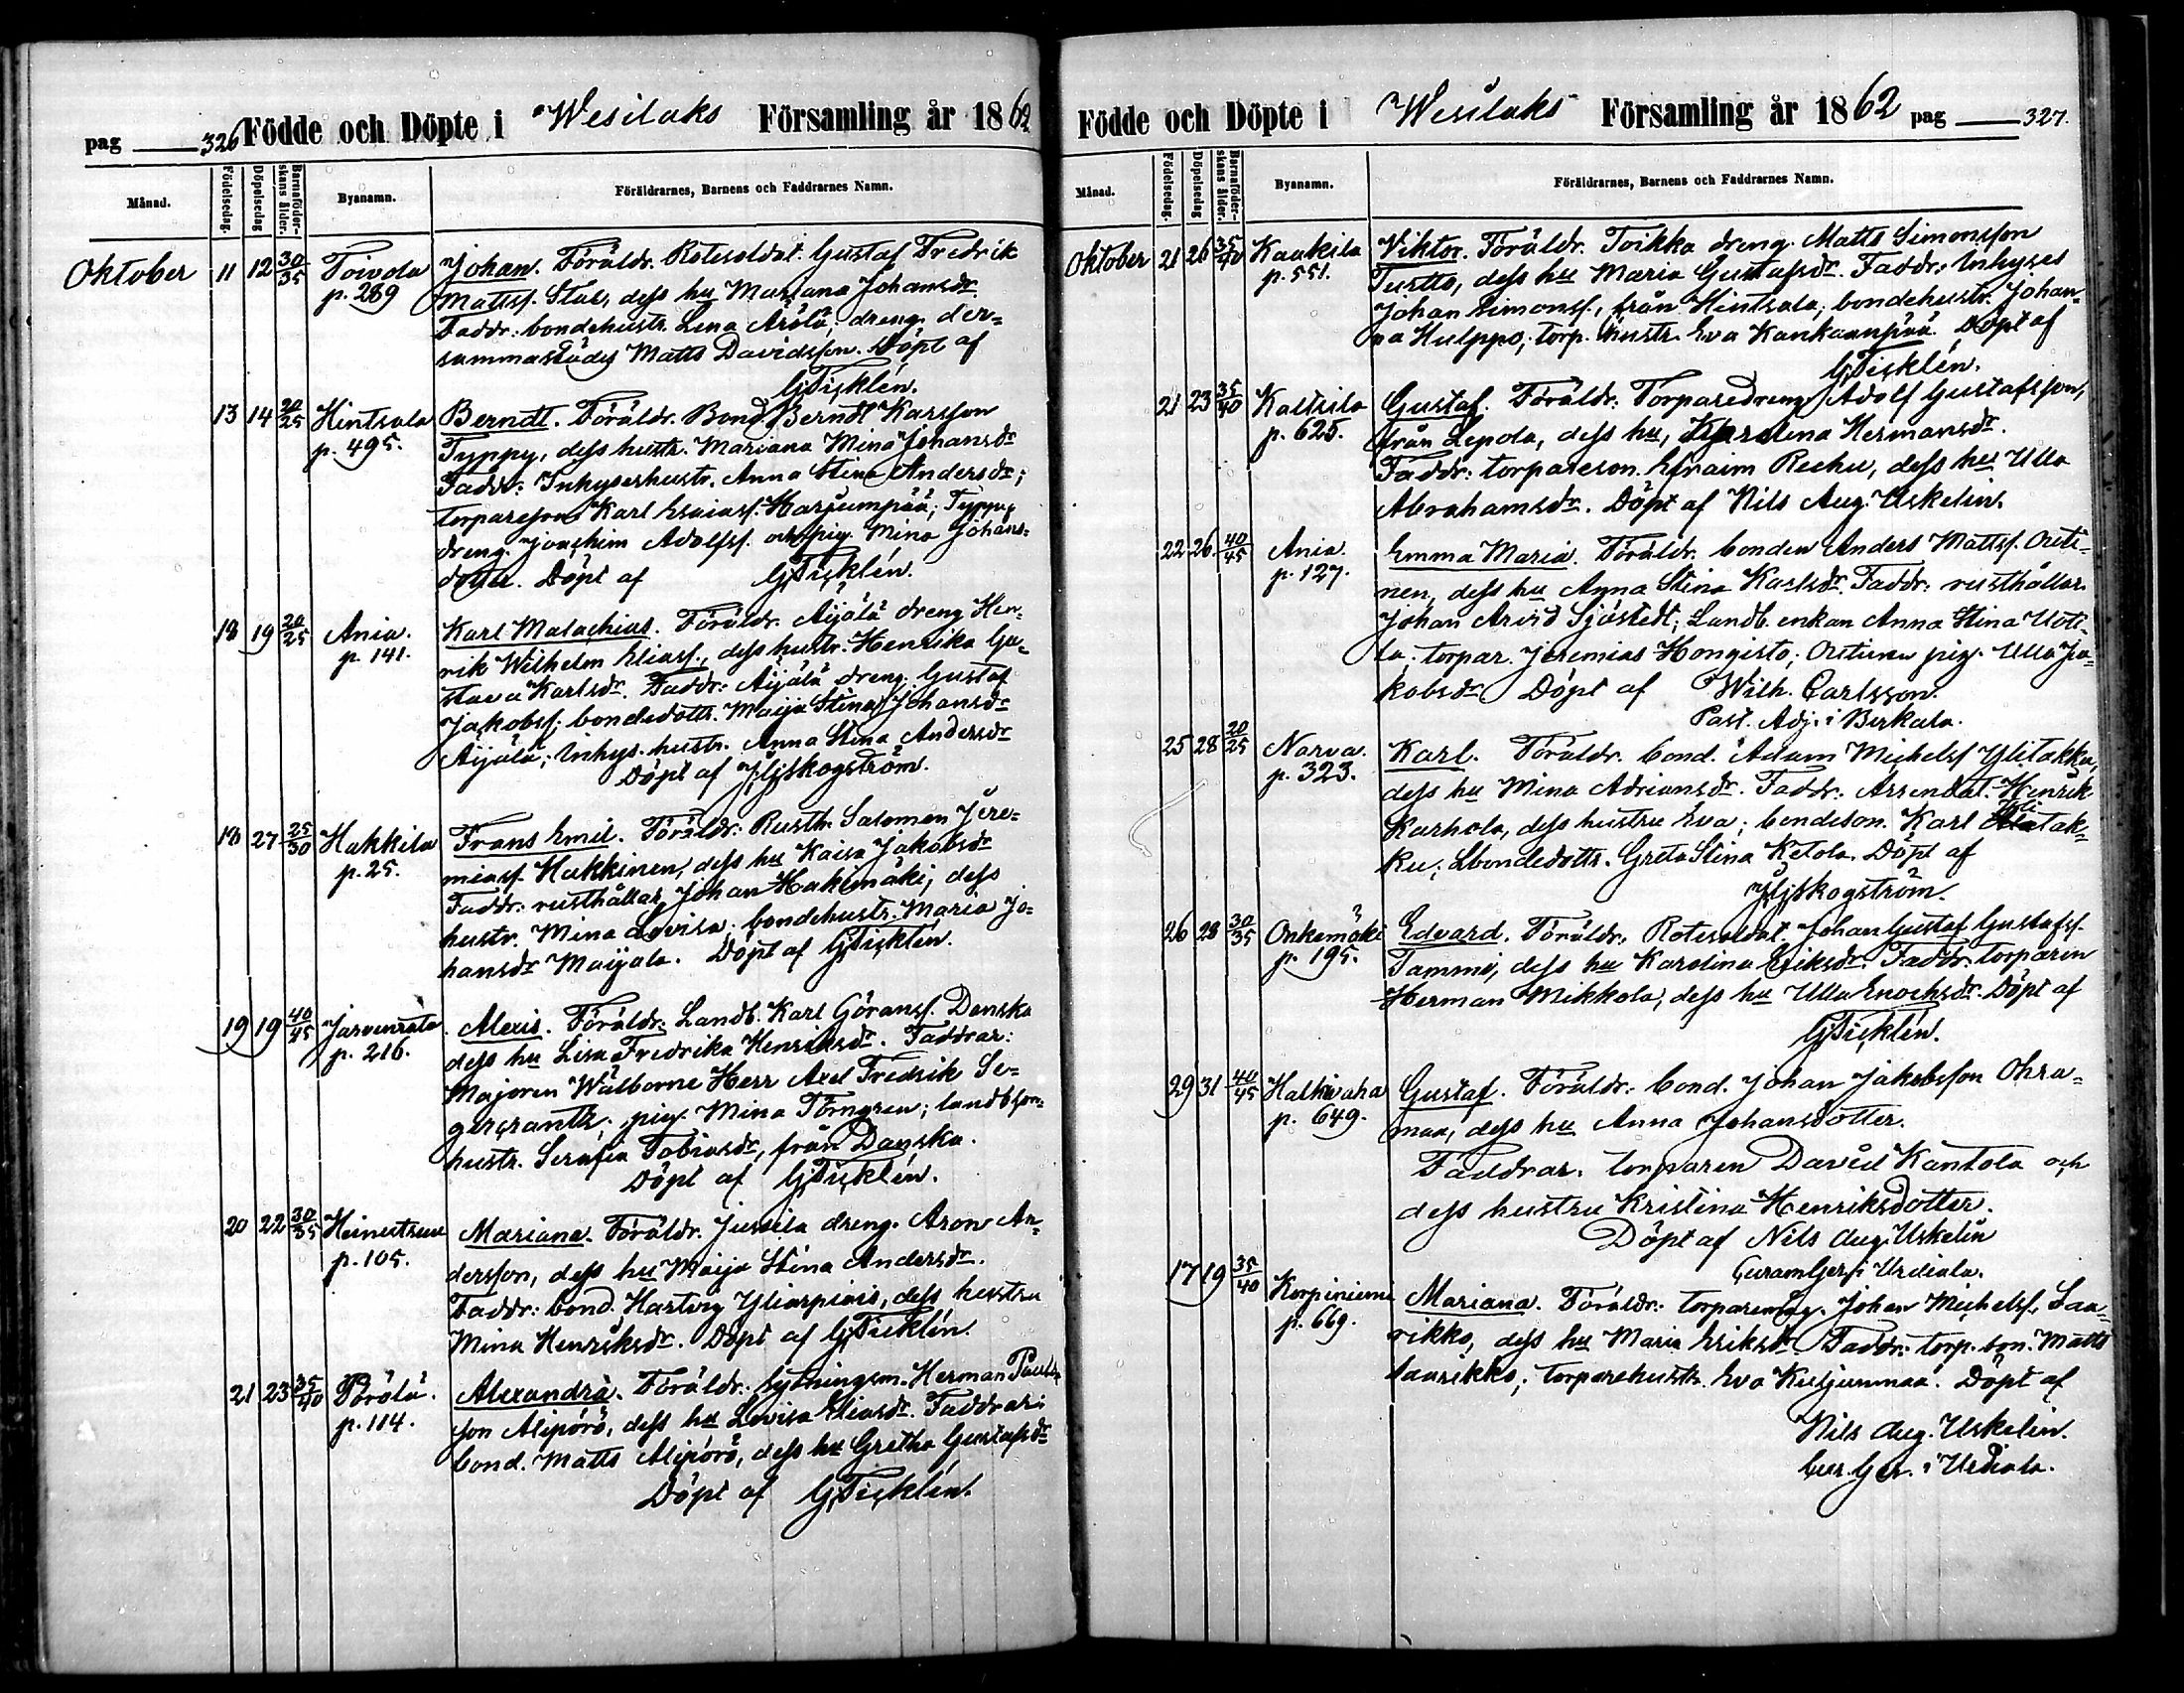 pag 326 Födde och Döpte i Wesilaks Församling år 1862
Månad. Födelsedag. Döpelsedag Barnaföderskans ålder. Byanamn. Föräldrarnes, Barnens och Faddrarnes Namn.
Oktober 11 12 30/35 Toivola Johan. Föräldr. Rotesoldat. Gustaf Fredrik
p. 289 Mattsf. Stål, dess hu Mariana Johansdr.
Faddr: bondehustr. Lena Arölä; dreng. der=
sammastädes Matts Davidsson. Döpt af
G Ticklén.
13 14 20/25 Hintsala Berndt. Föräldr. Bond. Berndt Karsson
p. 495. Typpy, dess hustr. Mariana Mina Johansdr
Faddr: Inhyseshustr. Anna Stina Andersdr;
torpareson Karl Esaiasf. Harjumpää; Typpy
dreng. Joachim Adolfsf. och pig. Mina Johans=
dotter. Döpt af G Ticklén.
18 19 20/25 Ania. Karl Malachias. Föräldr. Äijälä dreng Hen=
p. 141. rik Wilhelm Eliasf., dess hustr. Henrika Gu=
stava Karlsdr. Faddr: Äijälä dreng. Gustaf
Jakobsf; bondedottr. Maija Stina Johansdr
Äijälä; Inhys. hustr. Anna Stina Andersdr
Döpt af Skogström.
18 27 25/30 Hakkila Frans Emil. Föräldr: Rusth. Salomon Jere=
p. 25. miasf. Hakkinen, dess hu Kaisa Jakobsdr
Faddr: rusthållar Johan Hakamäki, dess
hustr. Mina Lovisa; bondehustr. Maria Jo=
hansdr Maijala. Döpt af G Ticklén.
19 19 40/45 Jarvenrata Alexis. Föräldr. Landb. Karl Göransf. Danska
p. 216. dess hu Lisa Fredrika Henriksdr. Faddrar:
Majoren Wälborne Herr Axel Fredrik Se=
gercranth; pig. Mina Törngren; landbson=
hustr. Serafia Tobiasdr, från Danska.
Döpt af G Ticklén.
20 22 30/35 Heinustrue Mariana. Föräldr. Jussila dreng. Aron An=
p. 105. dersson, dess hu Maija Stina Andersdr.
Faddr: bond. Hartvig Yliarpiais, dess hustru
Mina Henriksdr. Döpt af G Ticklén.
21 23 35/40 Pörölä. Alexandra. Föräldr. Sytningsm. Herman Pauls=
p. 114. son Alipörö, dess hu Lovisa Eliasdr. Faddrar:
bond. Matts Alipörö, dess hu Gretha Gustafsdr
Döpt af G Ticklén.
Födde och Döpte i Wesilaks Församling år 1862 pag 327.
Månad. Födelsedag. Döpelsedag Barnaföderskans ålder. Byanamn. Föräldrarnes, Barnens och Faddrarnes Namn.
Oktober 21 26 35/40 Kaakila Viktor. Föräldr. Toikka dreng. Matts Simonsson
p. 551. Turtto, dess hu Maria Gustafsdr. Faddr: Inhyses
Johan Simonsf., från Hintsala; bondehustr. Johan=
na Hulppo; torp. hustr. Eva Kankaanpää. Döpt af
G Ticklén.
21 23 35/40 Kaltsila Gustaf. Föräldr: Torparedreng Adolf Gustafsson,
p. 625. från Lepola, dess hu, Karolina Hermansdr.
Faddr: torpareson. Efraim Reehu, dess hu Ulla
Abrahamsdr. Döpt af Nils Aug. Uskelin.
22 26 40/45 Ania. Emma Maria. Föräldr. bonden Anders Mattsf. Outi=
p. 127. nen, dess hu Anna Stina Karlsdr. Faddr: rusthållar.
Johan Arvid Sjöstedt; Landb. enkan Anna Stina Uoti=
la; torpar. Jeremias Hongisto; Outinen pig. Ulla Ja=
kobsdr. Döpt af Wilh. Carlsson.
Past. Adj. i Birkala.
25 28 20/25 Narva. Karl. Föräldr. bond. Adam Michelsf Ylitakku,
p. 323. dess hu Mina Adriansdr. Faddr: Arrendat. Henrik
Karhola, dess hustru Eva; bondeson. Karl Ylitak=
ku; Lbondedottr. Greta Stina Ketola. Döpt af
Skogström.
26 28 30/35 Onkemäki Edvard. Föräldr. Rotesoldat. Johan Gustaf Gustafsf.
p. 195. Tammi, dess hu Karolina Eriksdr. Faddr. torparen
Herman Mikkola, dess hu Ulla Enochsdr. Döpt af
G Ticklén.
29 31 40/45 Halkivaha Gustaf. Föräldr. bond. Johan Jakobsson Ohra=
p. 649. maa, dess hu Anna Johansdotter.
Faddrar. torparen David Kantola och
dess hustru Kristina Henriksdotter.
Döpt af Nils Aug. Uskelin
Curam Ger. i Urdiala.
17 19 35/40 Korpiniemi Mariana. Föräldr: torparemåg. Johan Michelsf. Saa=
p. 669. rikko, dess hu Maria Eriksdr. Faddr: torp. son. Matts
Saarikko; torparehustr. Eva Kuljunmaa. Döpt af
Nils Aug. Uskelin.
Cur. Ger. i Urdiala.